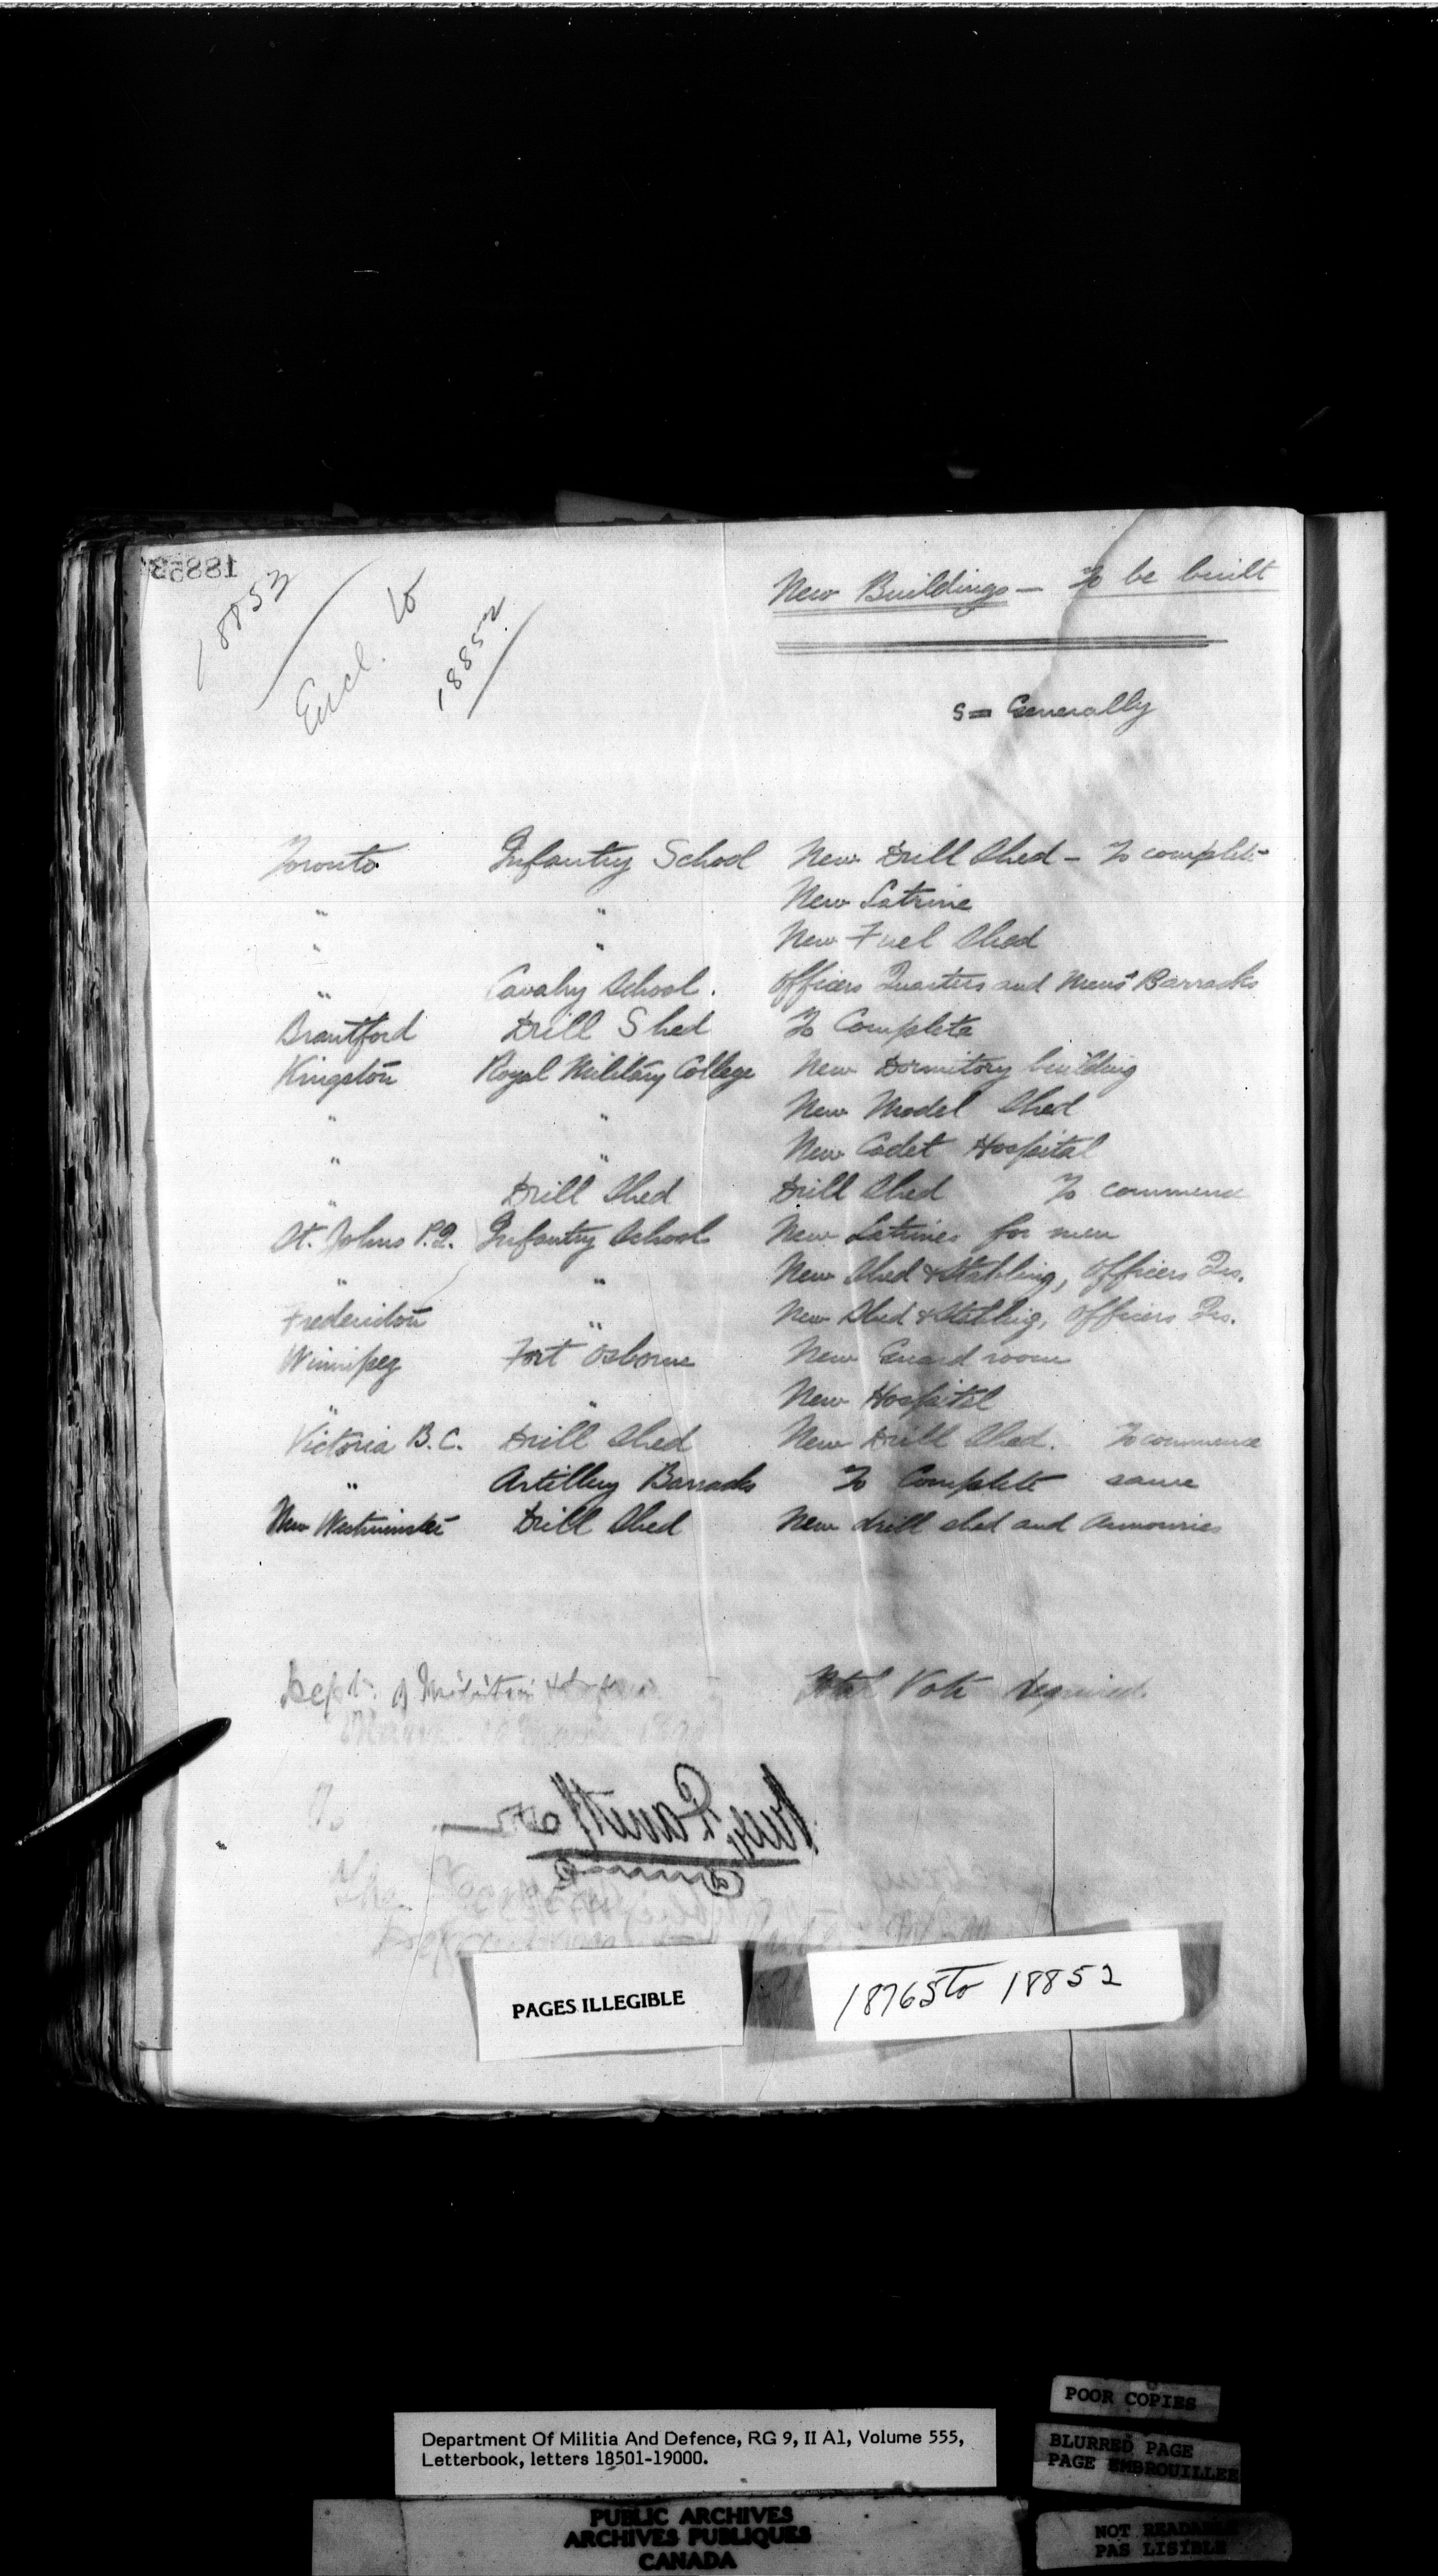 18853
18853
Encl. to
18852
New Buildings — To be built
S= Generally
Toronto Infantry School New Drill Shed - To complete
" " New Latrine
" " New Fuel Shed
" Cavalry School. Officers Quarters and Mens' Barracks
Brantford Drill Shed To Complete
Kingston Royal Military College New Dormitory building
" " New Model Shed
" " New Cadet Hospital
" Drill Shed Drill Shed To commence
St. Johns P.Q. Infantry School New Latrines for men
" " New Shed & Stabling, Officers Qrs.
Fredericton " New Shed & Stabling, Officers Qrs.
Winnipeg Fort Osborne New Guard room
" " New Hospital
Victoria B.C. Drill Shed New Drill Shed. To commence
" Artillery Barracks To Complete same
New Westminster Drill Shed New drill shed and Armouries
Dept. of Militia & Total Vote required.
To
The
PAGES ILLEGIBLE
18765 to 18852
POOR COPIES
Department Of Militia And Defence, RG 9, II A1, Volume 555,
Letterbook, letters 18501-19000.
BLURRED PAGE
PAGE EMBROUILLEE
PUBLIC ARCHIVES
ARCHIVES PUBLIQUES
CANADA
NOT READABLE
PAS LISIBLE